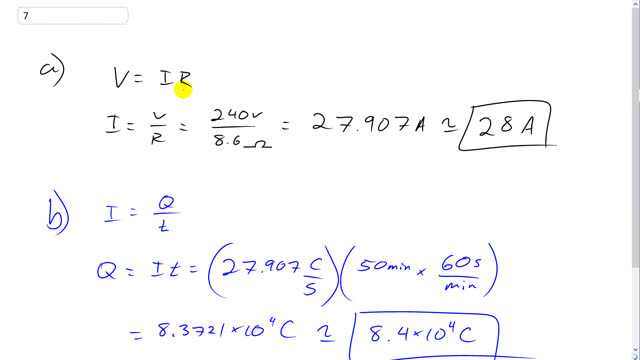 7
a) V = I R
I = V/R = 240V/8.6Ω = 27.907A ≃ 28 A
b) I = Q/t
Q = It = (27.907 C/S)(50min × 60s/min)
= 8.3721×10⁴ C ≃ 8.4×10⁴C